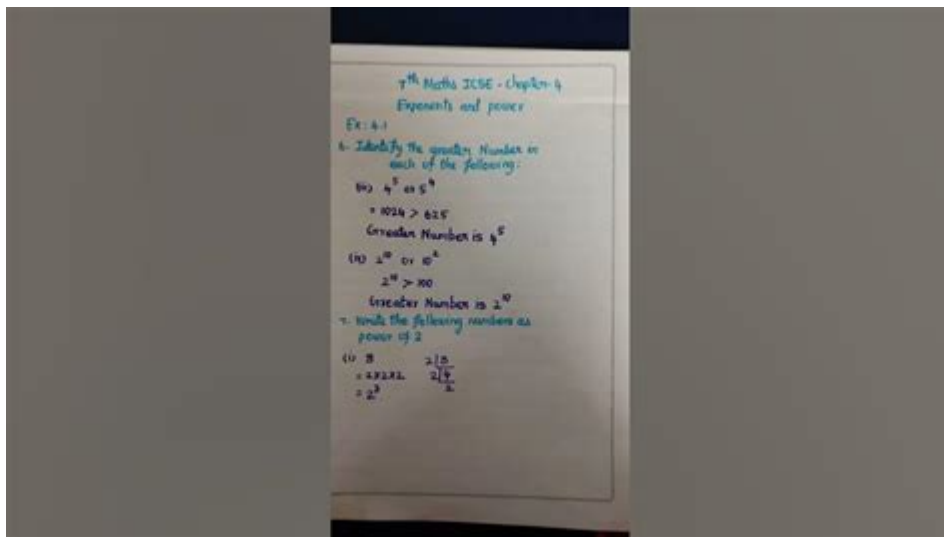 7th Maths ICSE - Chapter-4
Exponents and power
Ex: 4.1
6. Identify the greater Number in
each of the following:
(iii) 4^5 or 5^4
= 1024 > 625
Greater Number is 4^5
(iv) 2^10 or 10^2
2^10 > 100
Greater Number is 2^10
7. Write the following numbers as
power of 2
(i) 8 2|8
= 2x2x2 2|4
= 2^3 2